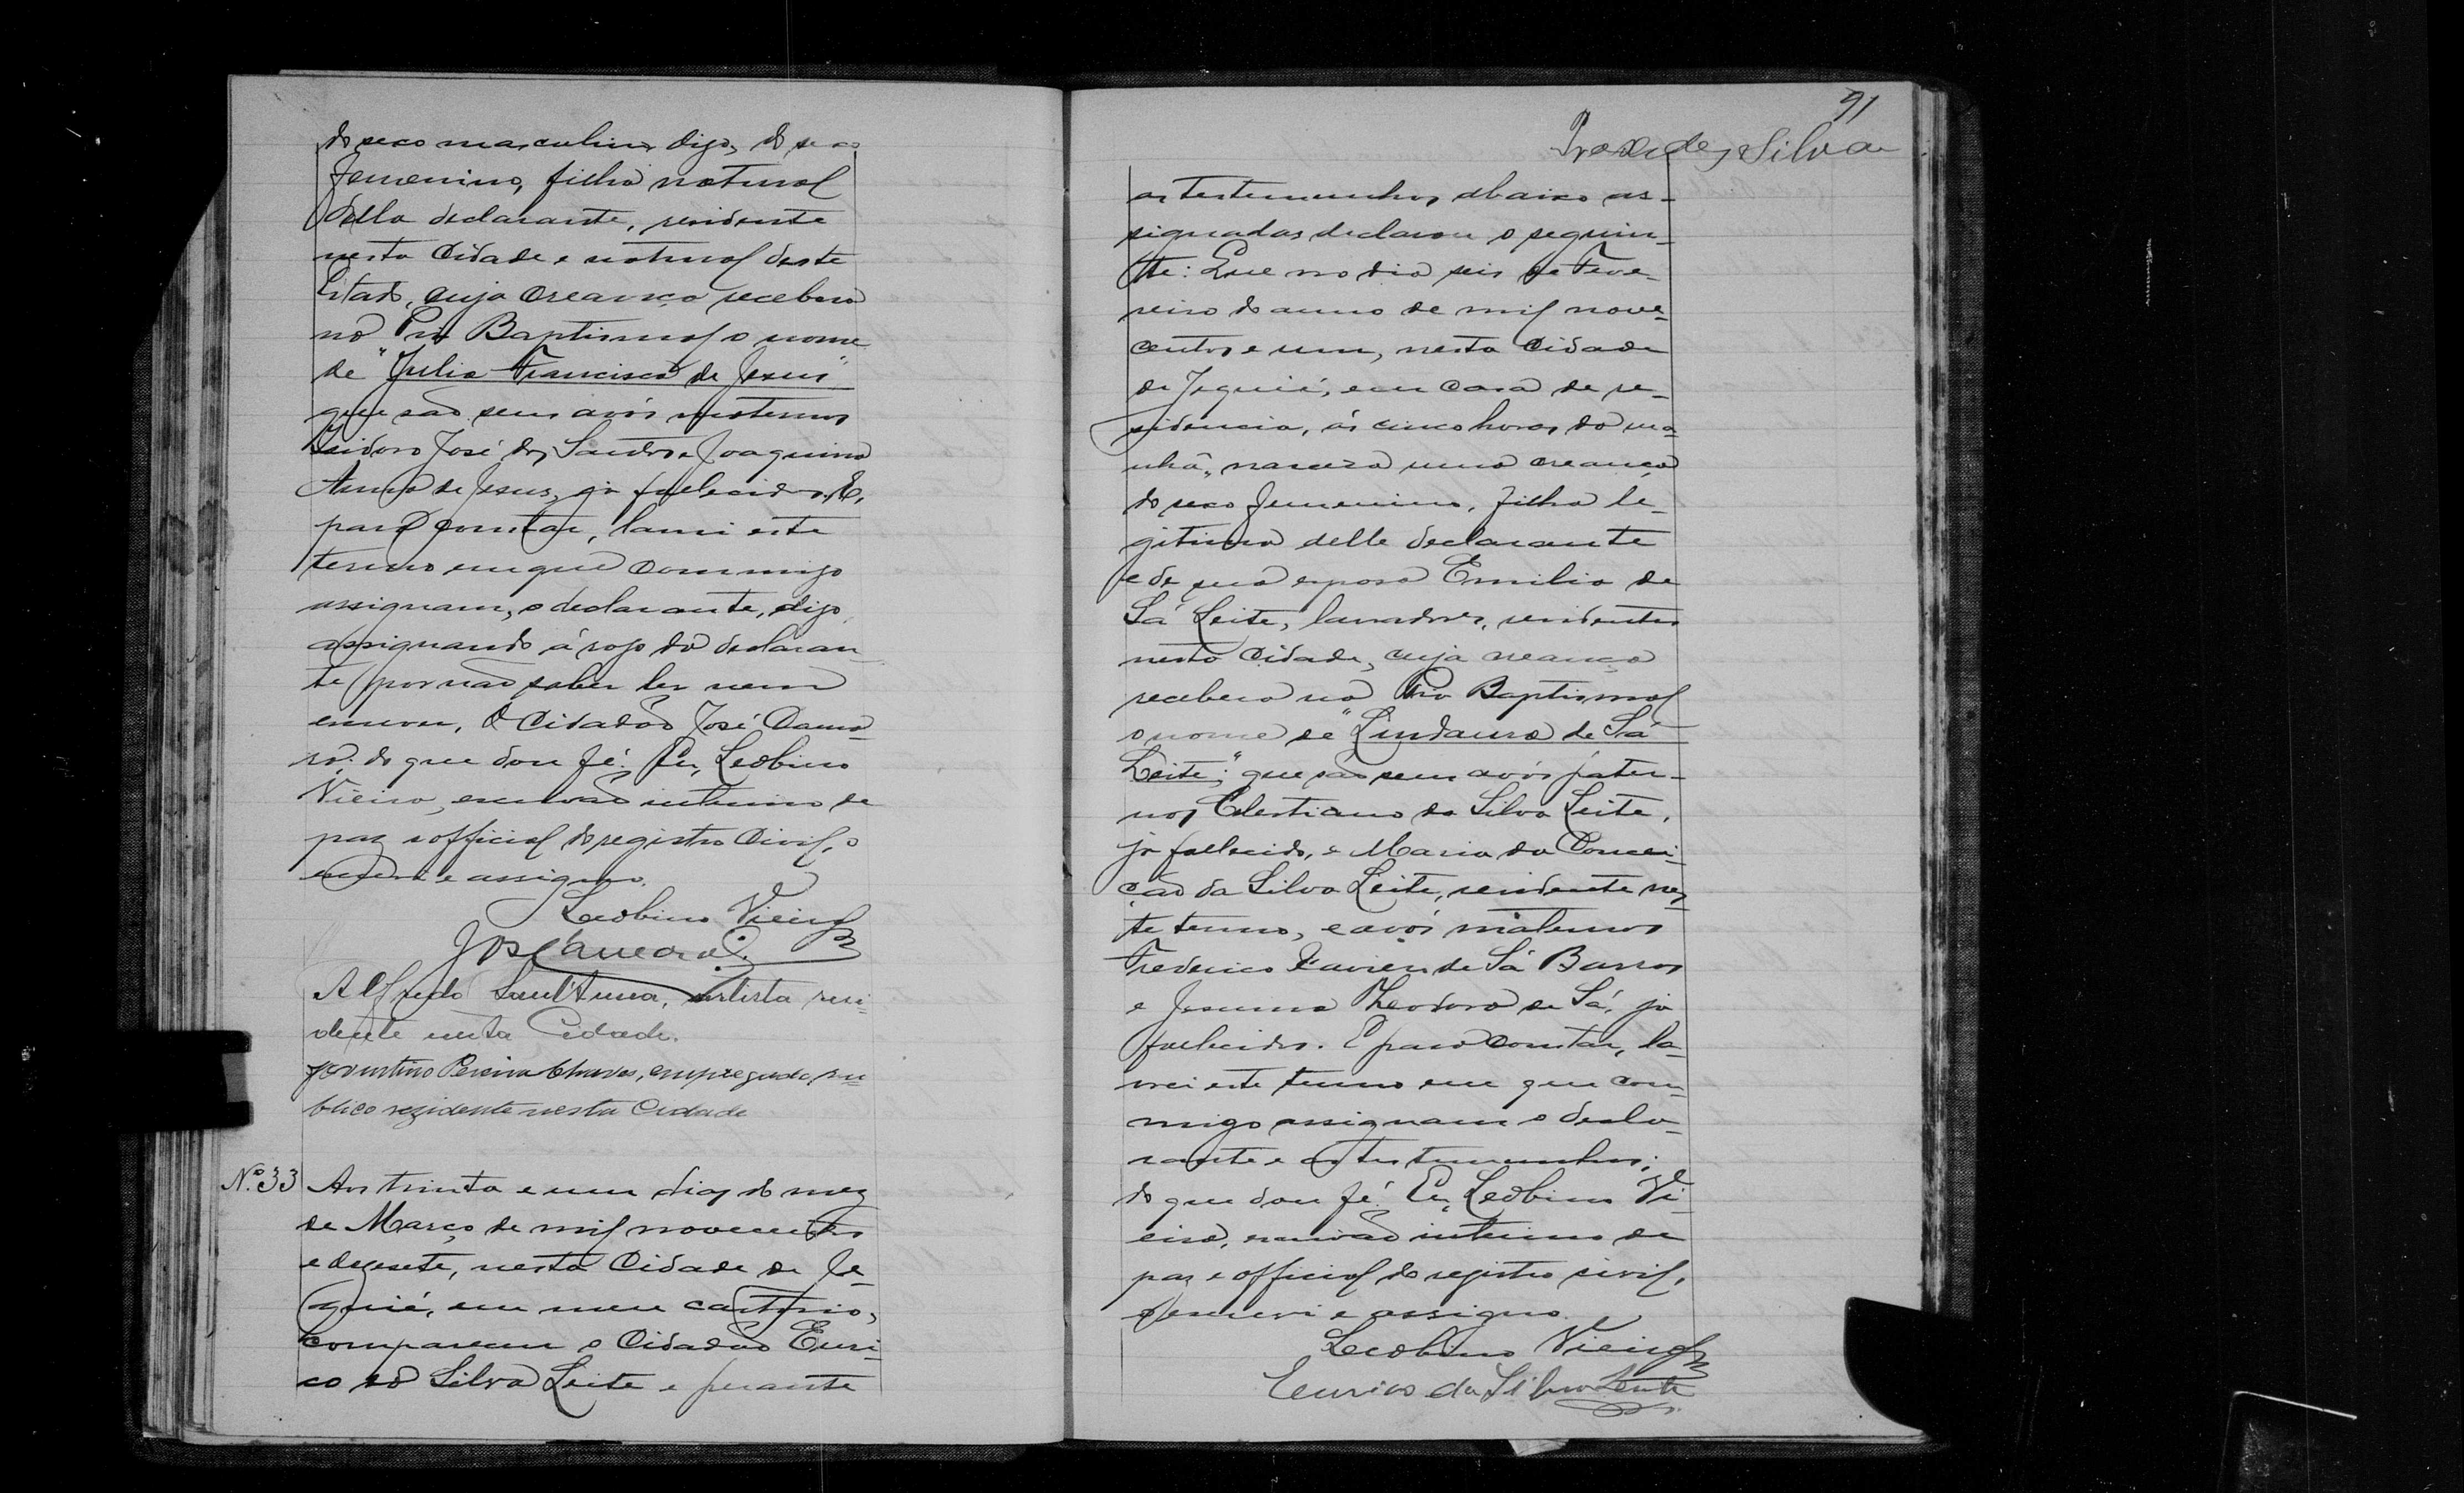 do sexo masculino, digo, do sexo
femenino, filha natural
della declarante, residente
nesta Cidade e natural deste
Estado, cuja creança recebera
na Pia Baptismal o nome
de "Julia Francisca de Jesus"
que são seus avós maternos
Isidoro José dos Santos e Joaquina
Anna de Jesus, já fallecidos. E,
para constar, lavrei este
termo em que commigo
assignam, o declarante, digo,
assignando á rogo da declaran-
te por não saber ler nem
escrever, O Cidadão José
do que dou fé. Eu, Leobino
Vieira, escrivão interino de
paz e official do registro Civil, o
escrevi e assigno.
Leobino Vieira
Alfredo Sant'Anna, artista resi-
dente nesta Cidade.
Pereira Chaves, empregado pu-
blico rezidente nesta Cidade
Nº 33 Aos trinta e um dias do mez
de Março de mil novecentos
e dezesete, nesta Cidade de Je-
quié, em meu cartorio,
compareceu o Cidadão Euri-
co da Silva Leite e perante
91
Praxedes Silva
as testemunhas abaixo as-
signadas declarou o seguin-
te: Que no dia seis de Feve-
reiro do anno de mil nove-
centos e um, nesta Cidade
de Jequié, em casa de re-
sidencia, ás cinco horas da ma-
nhã, nascera uma creança
do sexo femenino, filha le-
gitima delle declarante
e de sua esposa Emilia de
Sá Leite, lavradores, residentes
nesta Cidade, cuja creança
recebera na Pia Baptismal
o nome de "Lindaura de Sá
Leite;" que são seus avós pater-
nos Celestiano da Silva Leite,
já fallecido, e Maria da Concei-
ção da Silva Leite, residente nes-
te termo, e avós maternos
Frederico Xavier de Sá Barros
e Jesuina Theodora de Sá, já
fallecidos. E para constar, la-
vrei este termo em que com-
migo assignam o decla-
rante e as testemunhas;
do que dou fé. Eu, Leobino Vi-
eira, escrivão interino de
paz e official do registro civil,
o escrevi e assigno.
Leobino Vieira
Eurico da Silva Leite